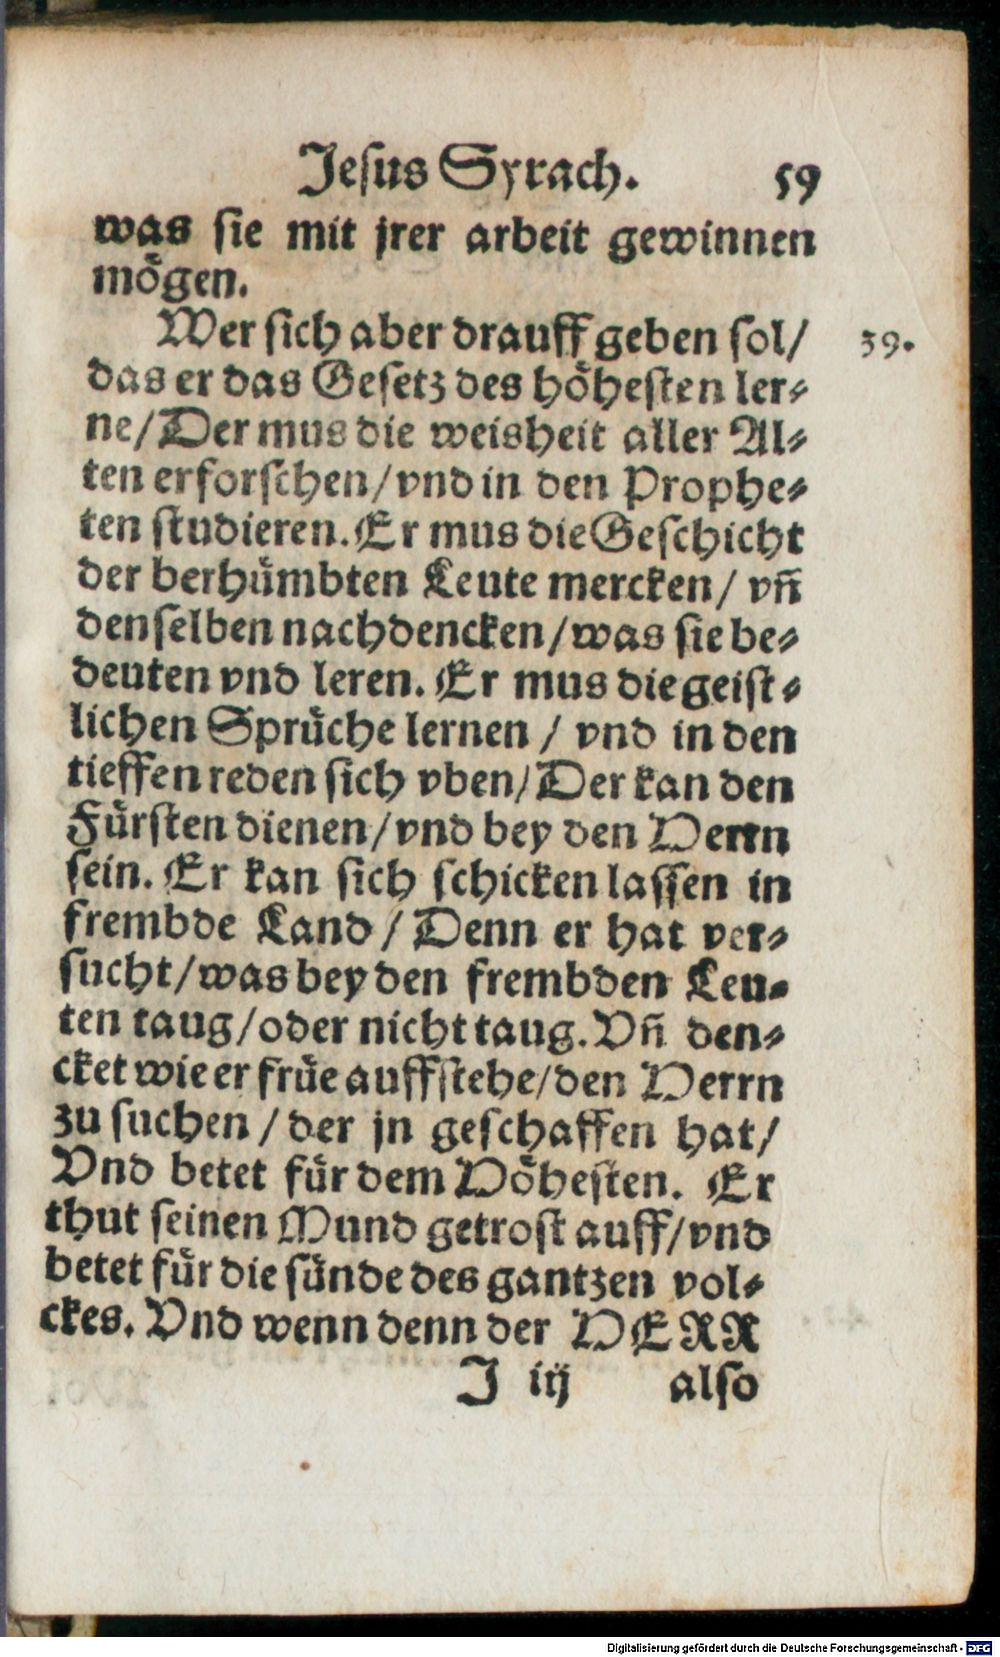 Jesus Syrach. 59
was sie mit jrer arbeit gewinnen
mögen.
Wer sich aber drauff geben sol/ 39.
das er das Gesetz des höhesten ler⸗
ne/Der mus die weisheit aller Al⸗
ten erforschen/vnd in den Prophe⸗
ten studieren. Er mus die Geschicht
der berhümbten Leute mercken/ vn̄
denselben nachdencken/was sie be⸗
deuten vnd leren. Er mus die geist⸗
lichen Sprüche lernen / vnd in den
tieffen reden sich vben/Der kan den
Fürsten dienen/vnd bey den Herrn
sein. Er kan sich schicken lassen in
frembde Land / Denn er hat ver⸗
sucht/was bey den frembden Leu⸗
ten taug/oder nicht taug. Vn̄ den⸗
cket wie er früe auffstehe/den Herrn
zu suchen / der jn geschaffen hat/
Vnd betet für dem Höhesten. Er
thut seinen Mund getrost auff/vnd
betet für die sünde des gantzen vol⸗
ckes. Vnd wenn denn der HERR
J iij also
Digitalisierung gefördert durch die Deutsche Forschungsgemeinschaft - DFG